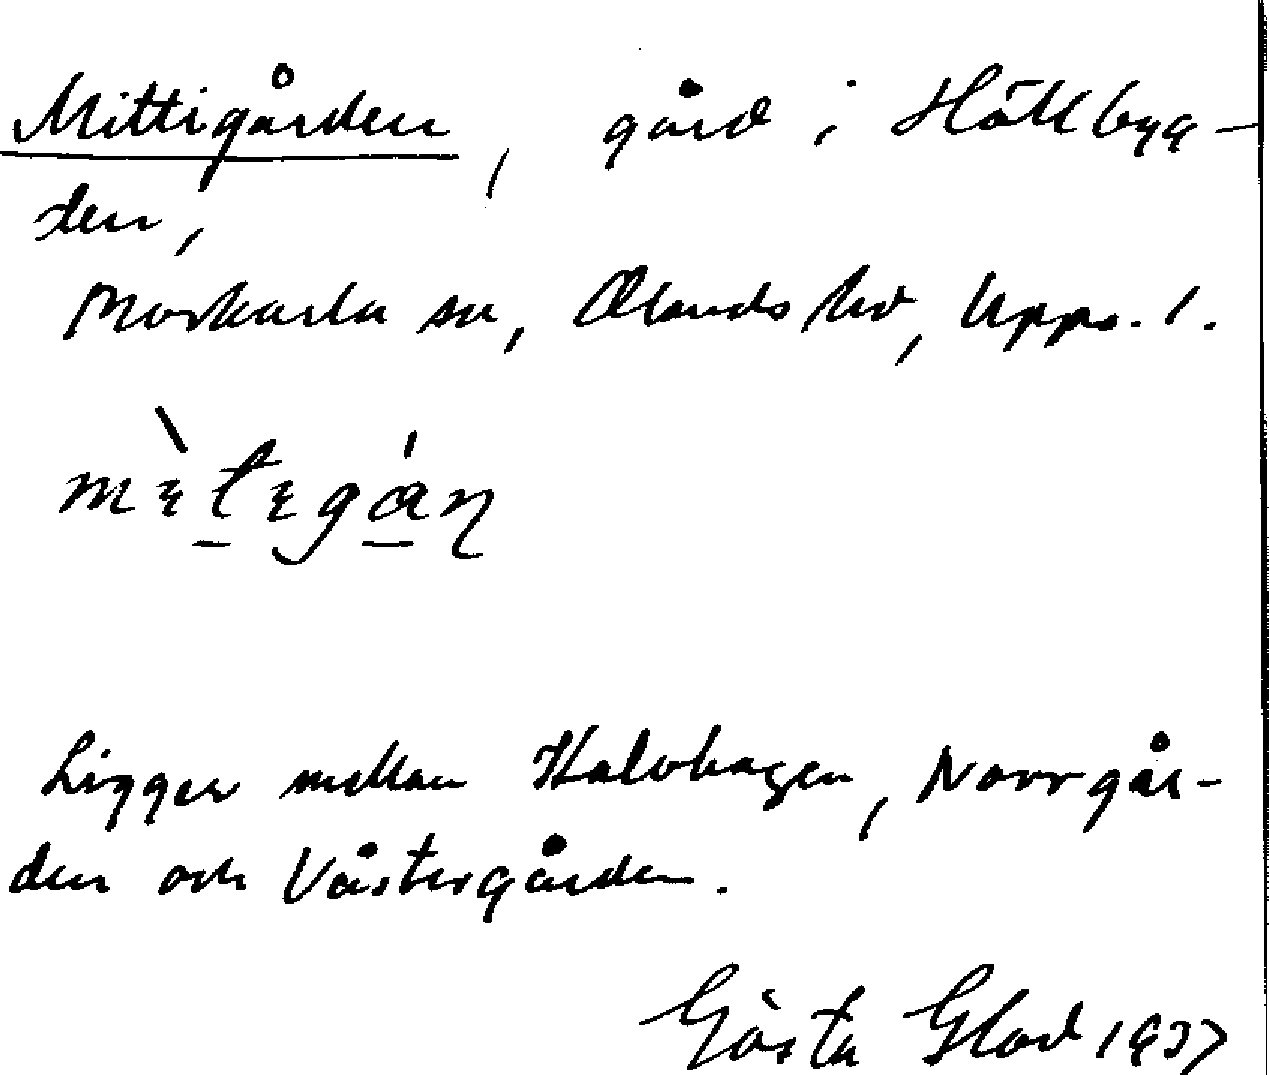 Mittigården, gård i Hökbyg-
den,
Morkarla sn, Olands hd, Upps. l.
Ligger mellan Kalvhagen, Norrgår-
den och Västergården.
Gösta Glad 1937